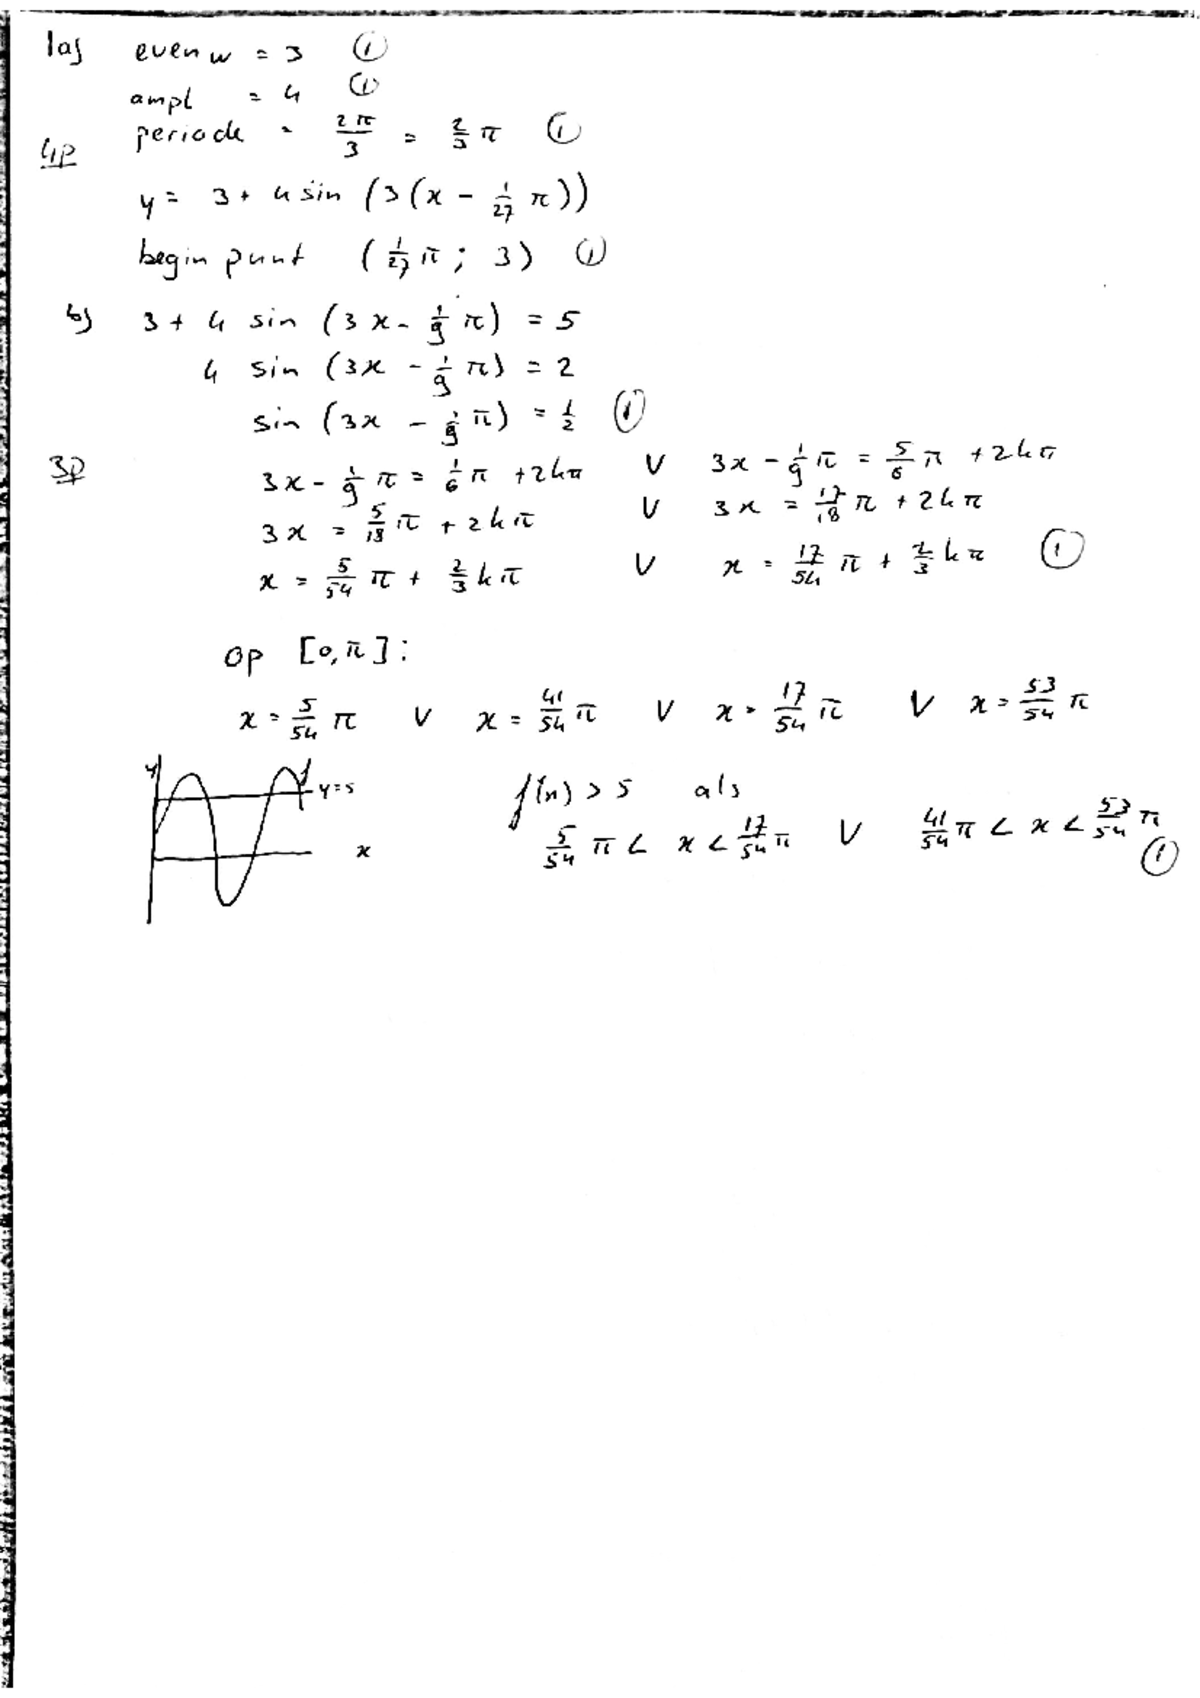 1a) evenw = 3 ①
ampl = 4 ①
4p periode = 2π/3 = 2/3 π ①
y = 3 + 4 sin (3(x - 1/27 π))
beginpunt (1/27 π ; 3) ①
b) 3 + 4 sin (3x - 1/9 π) = 5
4 sin (3x - 1/9 π) = 2
sin (3x - 1/9 π) = 1/2 ①
3p 3x - 1/9 π = 1/6 π + 2kπ V 3x - 1/9 π = 5/6 π + 2kπ
3x = 5/18 π + 2kπ V 3x = 17/18 π + 2kπ
x = 5/54 π + 2/3 kπ V x = 17/54 π + 2/3 kπ ①
op [0,π]:
x = 5/54 π V x = 41/54 π V x = 17/54 π V x = 53/54 π
y f y=5
x
f(x) > 5 als
5/54 π < x < 17/54 π V 41/54 π < x < 53/54 π ①